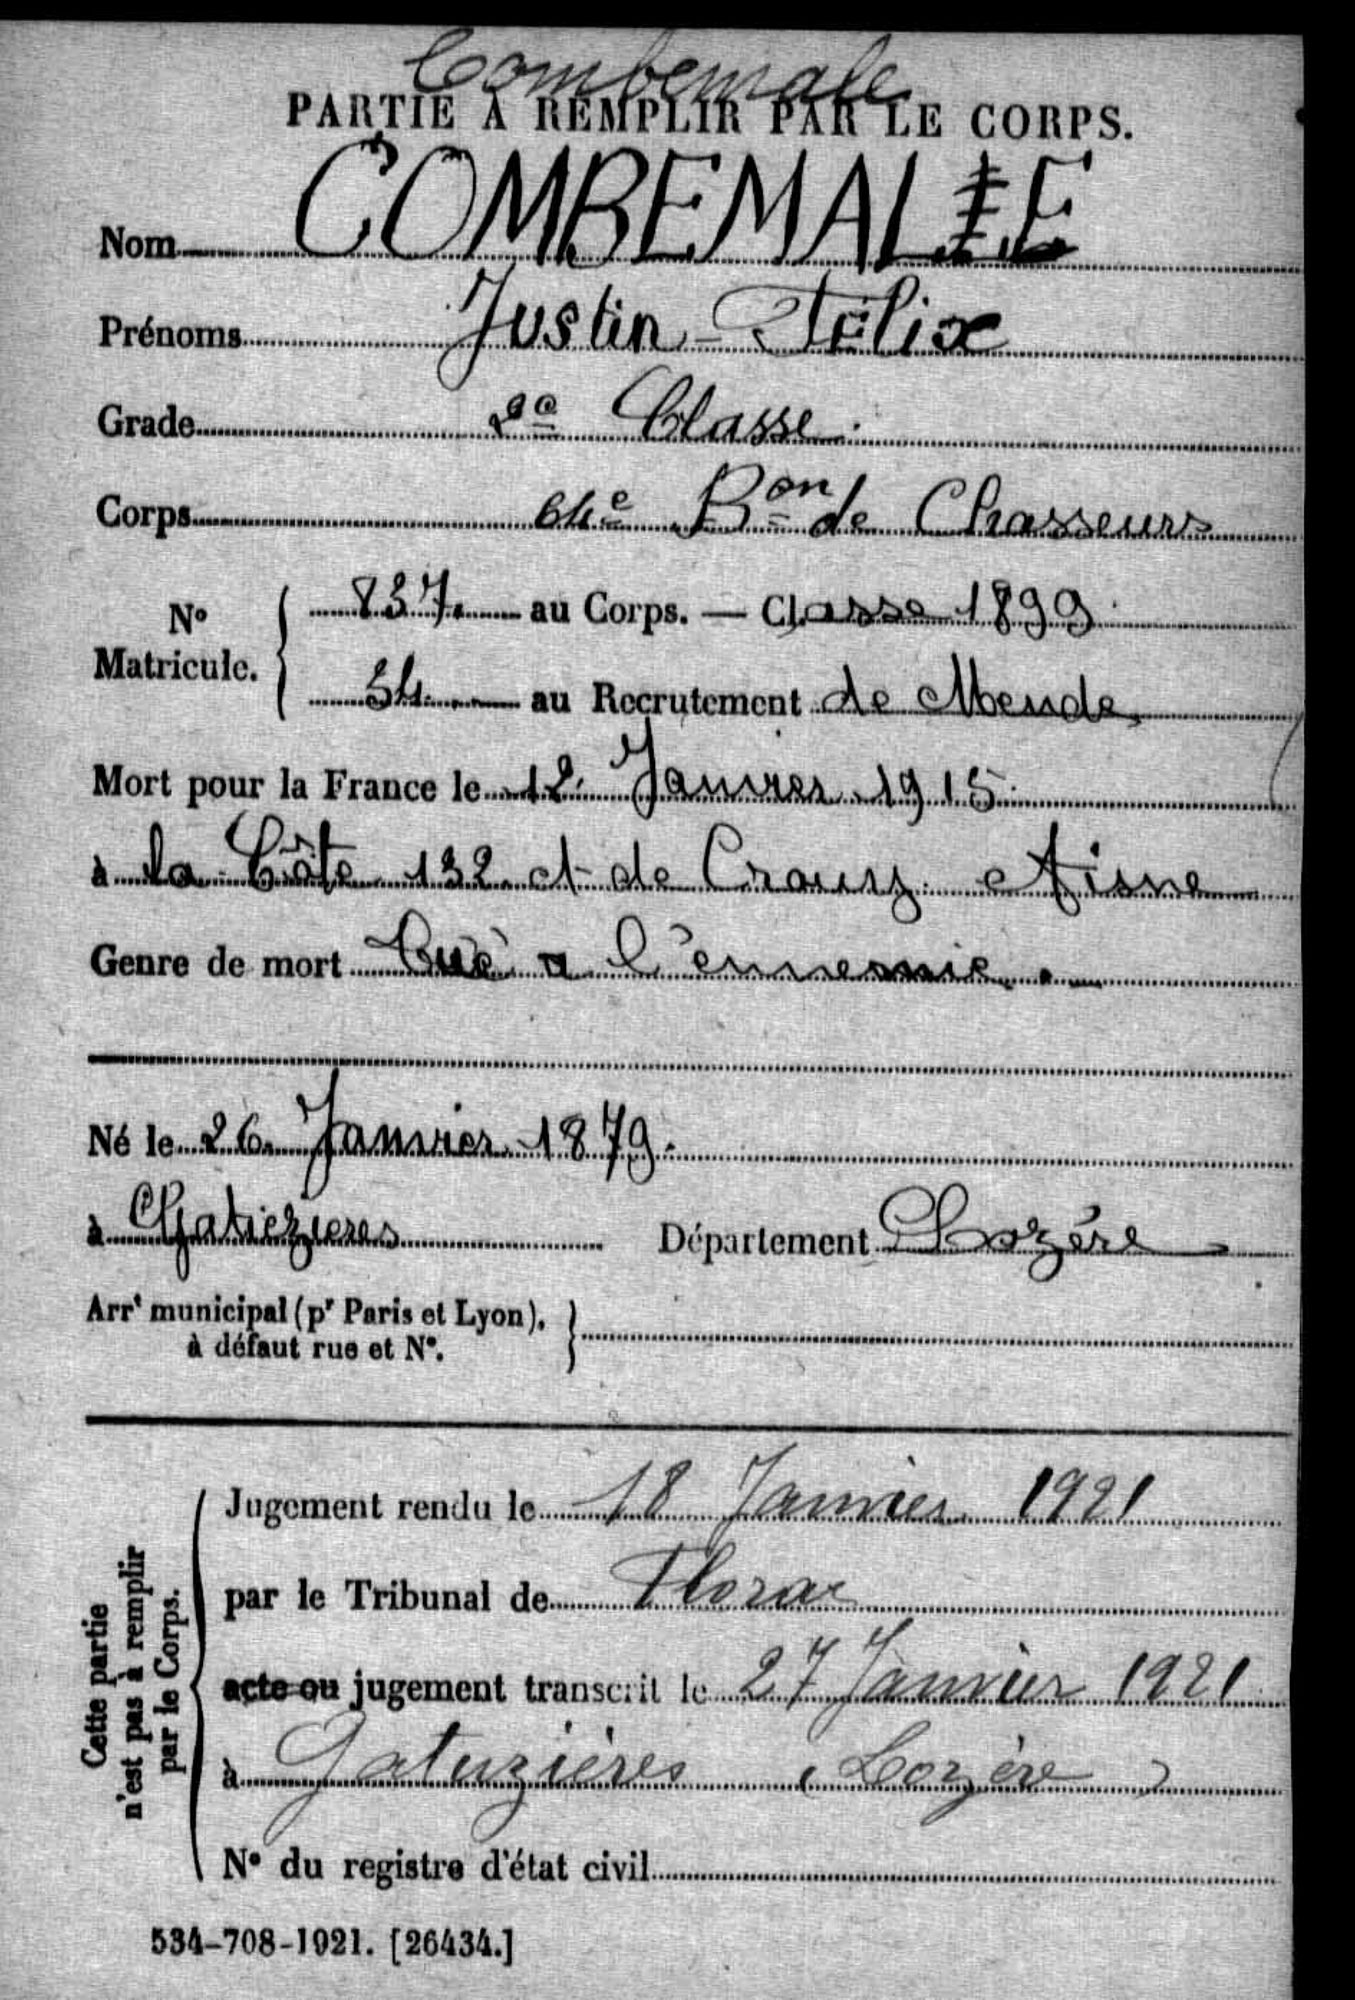 Combemale
PARTIE À REMPLIR PAR LE CORPS.
Nom COMBEMALE
Prénoms Justin-Félix
Grade 2e Classe.
Corps 64e Bon de Chasseurs
No Matricule. 837. au Corps. — Classe 1899.
54. au Recrutement de Mende
Mort pour la France le 12 Janvier 1915.
à la Côte 132 et de Crouy Aisne
Genre de mort Tué a l'ennemie.
Né le 26 Janvier 1879.
à Gatiezieres Département Lozére
Arrt municipal (pr Paris et Lyon),
à défaut rue et No.
Cette partie
n'est pas à remplir
par le Corps.
Jugement rendu le 18 Janvier 1921
par le Tribunal de Florac
acte ou jugement transcrit le 27 Janvier 1921
à Gatuzières (Lozère)
No du registre d'état civil
534-708-1921. [26434.]